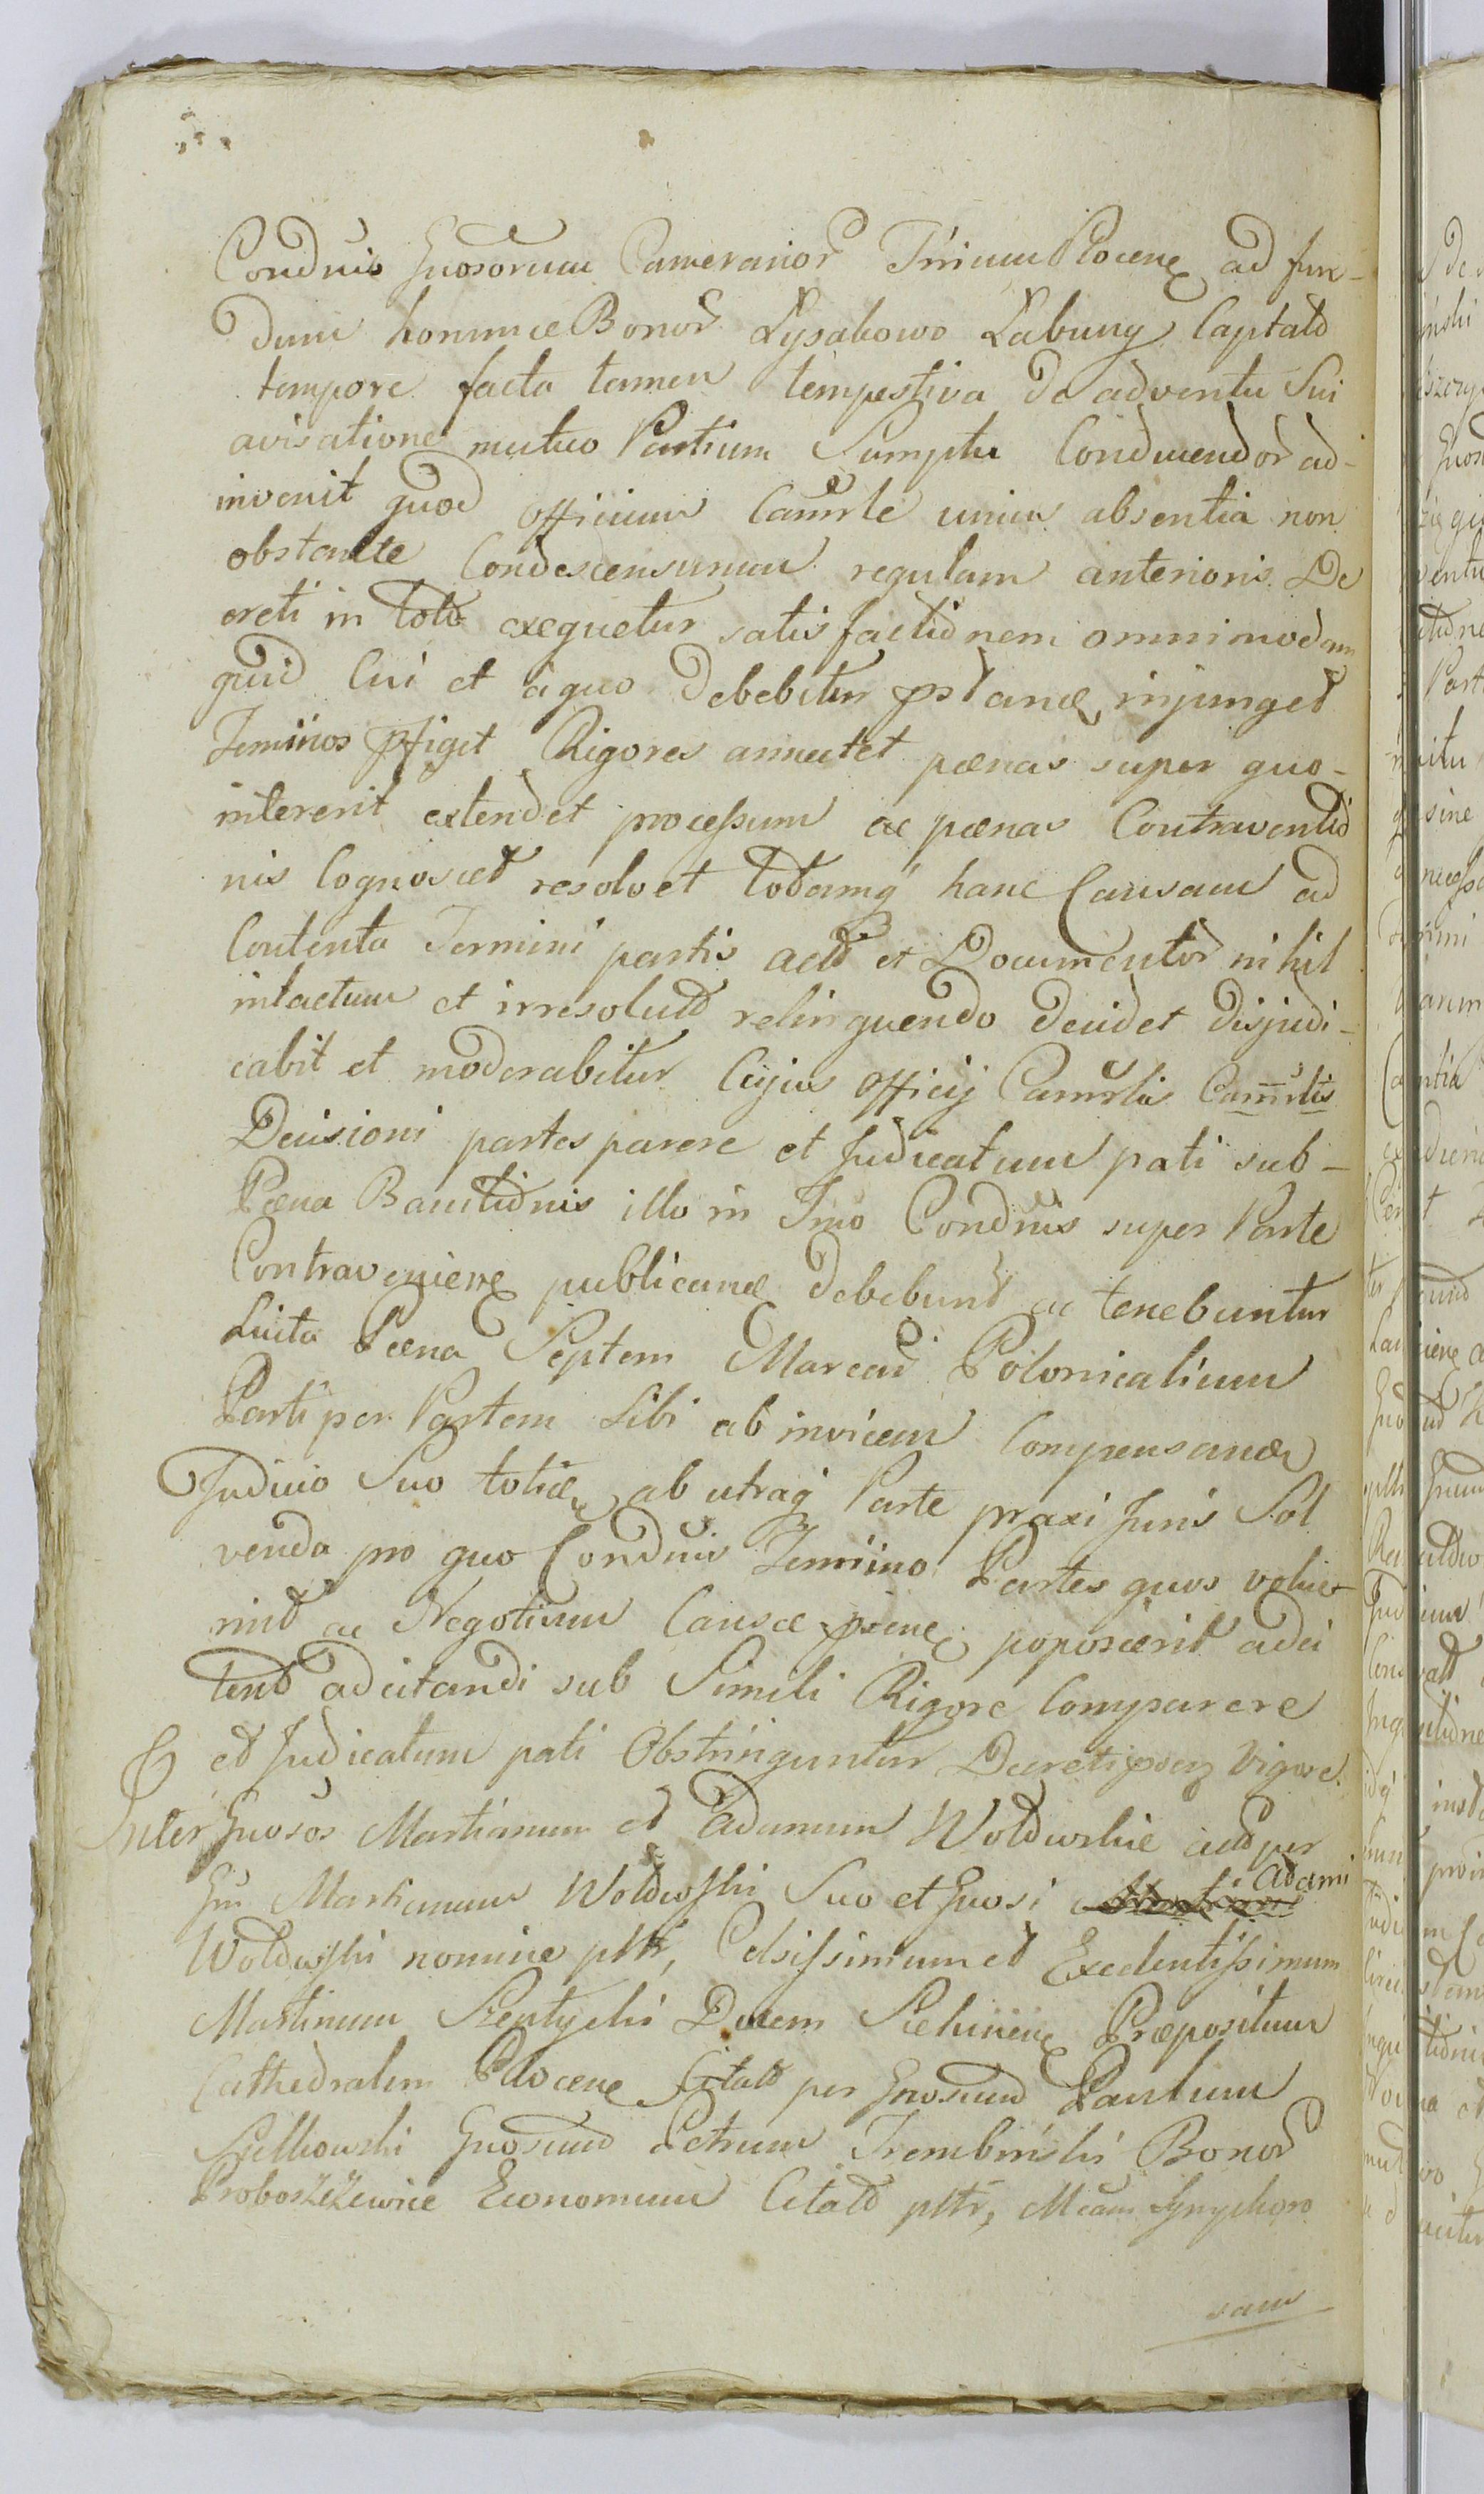 Condnis Gnosorum Camerarior Trrium Plocen ad fun-
dum hommce Bonor Łysakowo Łabuny Captato
tempore facta tamen tempestiva de adventu Sui
avisatione mutuo Partium Sumptu Conducendor ad-
invenit quod Officium Camrle unius absentia non
obstante Condescensurum regulam anterioris De
creti in toto exequetur satisfactionem omnimodam
quid Cui et a quo debebitur pstand injunget
Terminos pfiget Rigores annectet pænas super quo-
intererit extendet processum ac pænas Contraventio
nis Cognoscet resolvet totamq hanc Causam ad
Contenta Termini partis actor et Documentor nihil
intactum et irresolutum relinquendo decidet disjudi-
cabit et moderabitur Cujus Officij Camrlis Camrlis
Decisioni partes parere et Judicatum pati sub-
Pæna Bannitionis illo in Tmo Condnis super Parte
Contravenien publicand debebunt ac tenebuntur
Luita Pæna Septem Marcar Polonicalium
Parti per Partem Sibi ab invicem Compensand
Judicio Suo toties ab utraq Parte praxi Juris Sol
venda pro quo Condnis Termino Partes quos volue-
rint ac Negotium Causæ psene poposcerit adci
tent adcitandi sub Simili Rigore Comparere
et Judicatum pati Obstringuntur Decreti psens Vigore.
Inter Gnosos Martianum et Adamum Woldwskie actor per
Gm Martianum Woldwski Suo et Gnosi Adami
Woldwski nomine pltr, Celsissimum et Excelentissimum
Martinum Szeptycki Ducem Sielunien Præpositum
Cathedralem Plocen Citato per Gnosum Paulum
Gnosum Petrum Trembinski Bonor
Proboszczewice Economum Citato pltr, Mcam Symphoro
sam